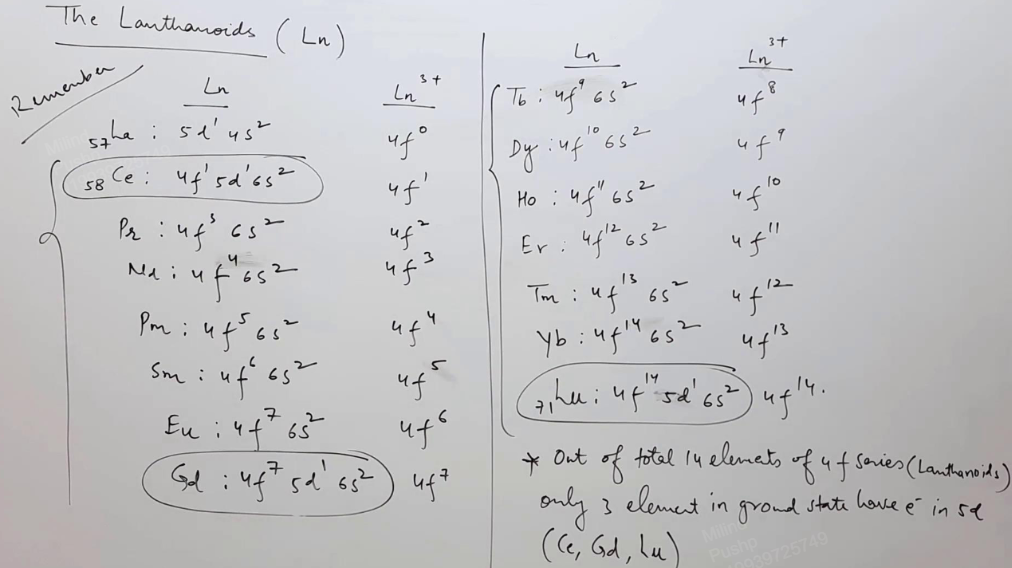 The Lanthanoids (Ln)
Remember
Ln Ln³⁺
₅₇La : 5d¹ 4s² 4f⁰
₅₈Ce : 4f¹ 5d¹ 6s² 4f¹
Pr : 4f³ 6s² 4f²
Nd : 4f⁴ 6s² 4f³
Pm : 4f⁵ 6s² 4f⁴
Sm : 4f⁶ 6s² 4f⁵
Eu : 4f⁷ 6s² 4f⁶
Gd : 4f⁷ 5d¹ 6s² 4f⁷
Ln Ln³⁺
Tb : 4f⁹ 6s² 4f⁸
Dy : 4f¹⁰ 6s² 4f⁹
Ho : 4f¹¹ 6s² 4f¹⁰
Er : 4f¹² 6s² 4f¹¹
Tm : 4f¹³ 6s² 4f¹²
Yb : 4f¹⁴ 6s² 4f¹³
₇₁Lu : 4f¹⁴ 5d¹ 6s² 4f¹⁴.
* Out of total 14 elements of 4f series (Lanthanoids)
only 3 element in ground state have e⁻ in 5d
(Ce, Gd, Lu)
Pushp